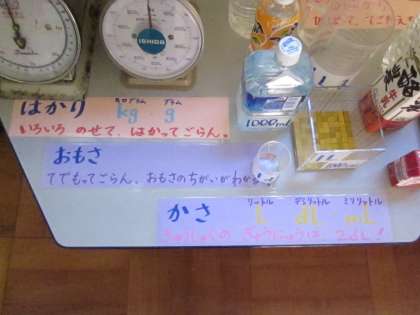 ISHIDA
はかり
キログラム グラム
kg g
いろいろ のせて、はかってごらん。
1000mL
1L
おもさ
てでもってごらん、おもさのちがいがわかる
かさ
リットル デシリットル ミリリットル
L dL mL
きゅうしょくの ぎゅうにゅうは 2dL!